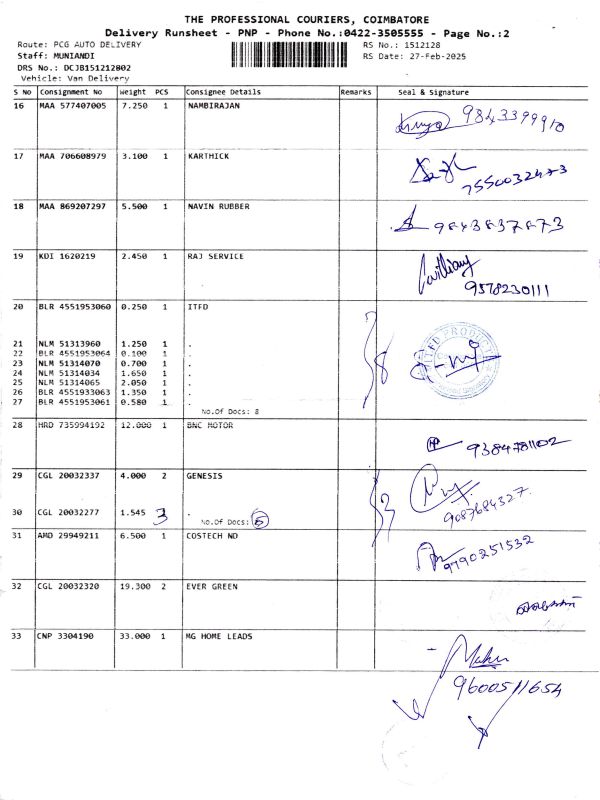 THE PROFESSIONAL COURIERS, COIMBATORE
Delivery Runsheet - PNP - Phone No.:0422-3505555 - Page No.:2
Route: PCG AUTO DELIVERY RS No.: 1512128
Staff: MUNIANDI RS Date: 27-Feb-2025
DRS No.: DCJB151212802
Vehicle: Van Delivery
S No Consignment No Weight PCS Consignee Details Remarks Seal & Signature
16 MAA 577407005 7.250 1 NAMBIRAJAN
9843399910
17 MAA 706608979 3.100 1 KARTHICK
7550032473
18 MAA 869207297 5.500 1 NAVIN RUBBER
9843837873
19 KDI 1620219 2.450 1 RAJ SERVICE
9578230111
20 BLR 4551953060 0.250 1 ITFD
21 NLM 51313960 1.250 1 .
22 BLR 4551953064 0.100 1 .
23 NLM 51314070 0.700 1 .
24 NLM 51314034 1.650 1 .
25 NLM 51314065 2.050 1 .
26 BLR 4551933063 1.350 1 .
27 BLR 4551953061 0.580 1 .
8
No.Of Docs: 8
28 HRD 735994192 12.000 1 BNC MOTOR
9384781102
29 CGL 20032337 4.000 2 GENESIS
9087684327
30 CGL 20032277 1.545 3 .
No.Of Docs:
31 AMD 29949211 6.500 1 COSTECH ND
9790251532
32 CGL 20032320 19.300 2 EVER GREEN
33 CNP 3304190 33.000 1 MG HOME LEADS
9600511654